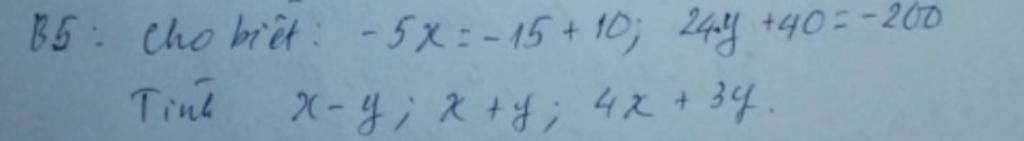 B5: Cho biết: -5x = -15 + 10; 24.y + 40 = -200
Tính x - y; x + y; 4x + 3y.